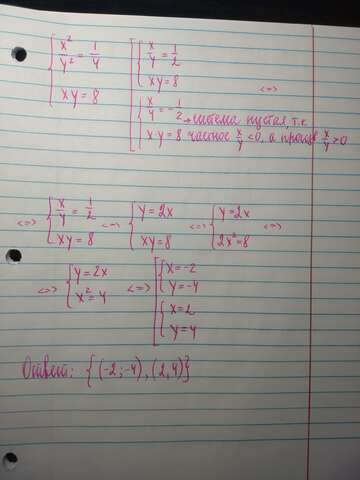 { x²/y² = 1/4
xy = 8
[ { x/y = 1/2
xy = 8 <=>
{ x/y = -1/2 → система пустая, т.к
xy = 8 частное x/y < 0, а x/y > 0
<=> { x/y = 1/2 <=> { y = 2x <=> { y = 2x <=>
xy = 8 xy = 8 2x² = 8
<=> { y = 2x <=> [ { x = -2
x² = 4 y = -4
{ x = 2
y = 4
Ответ: { (-2; -4), (2, 4) }